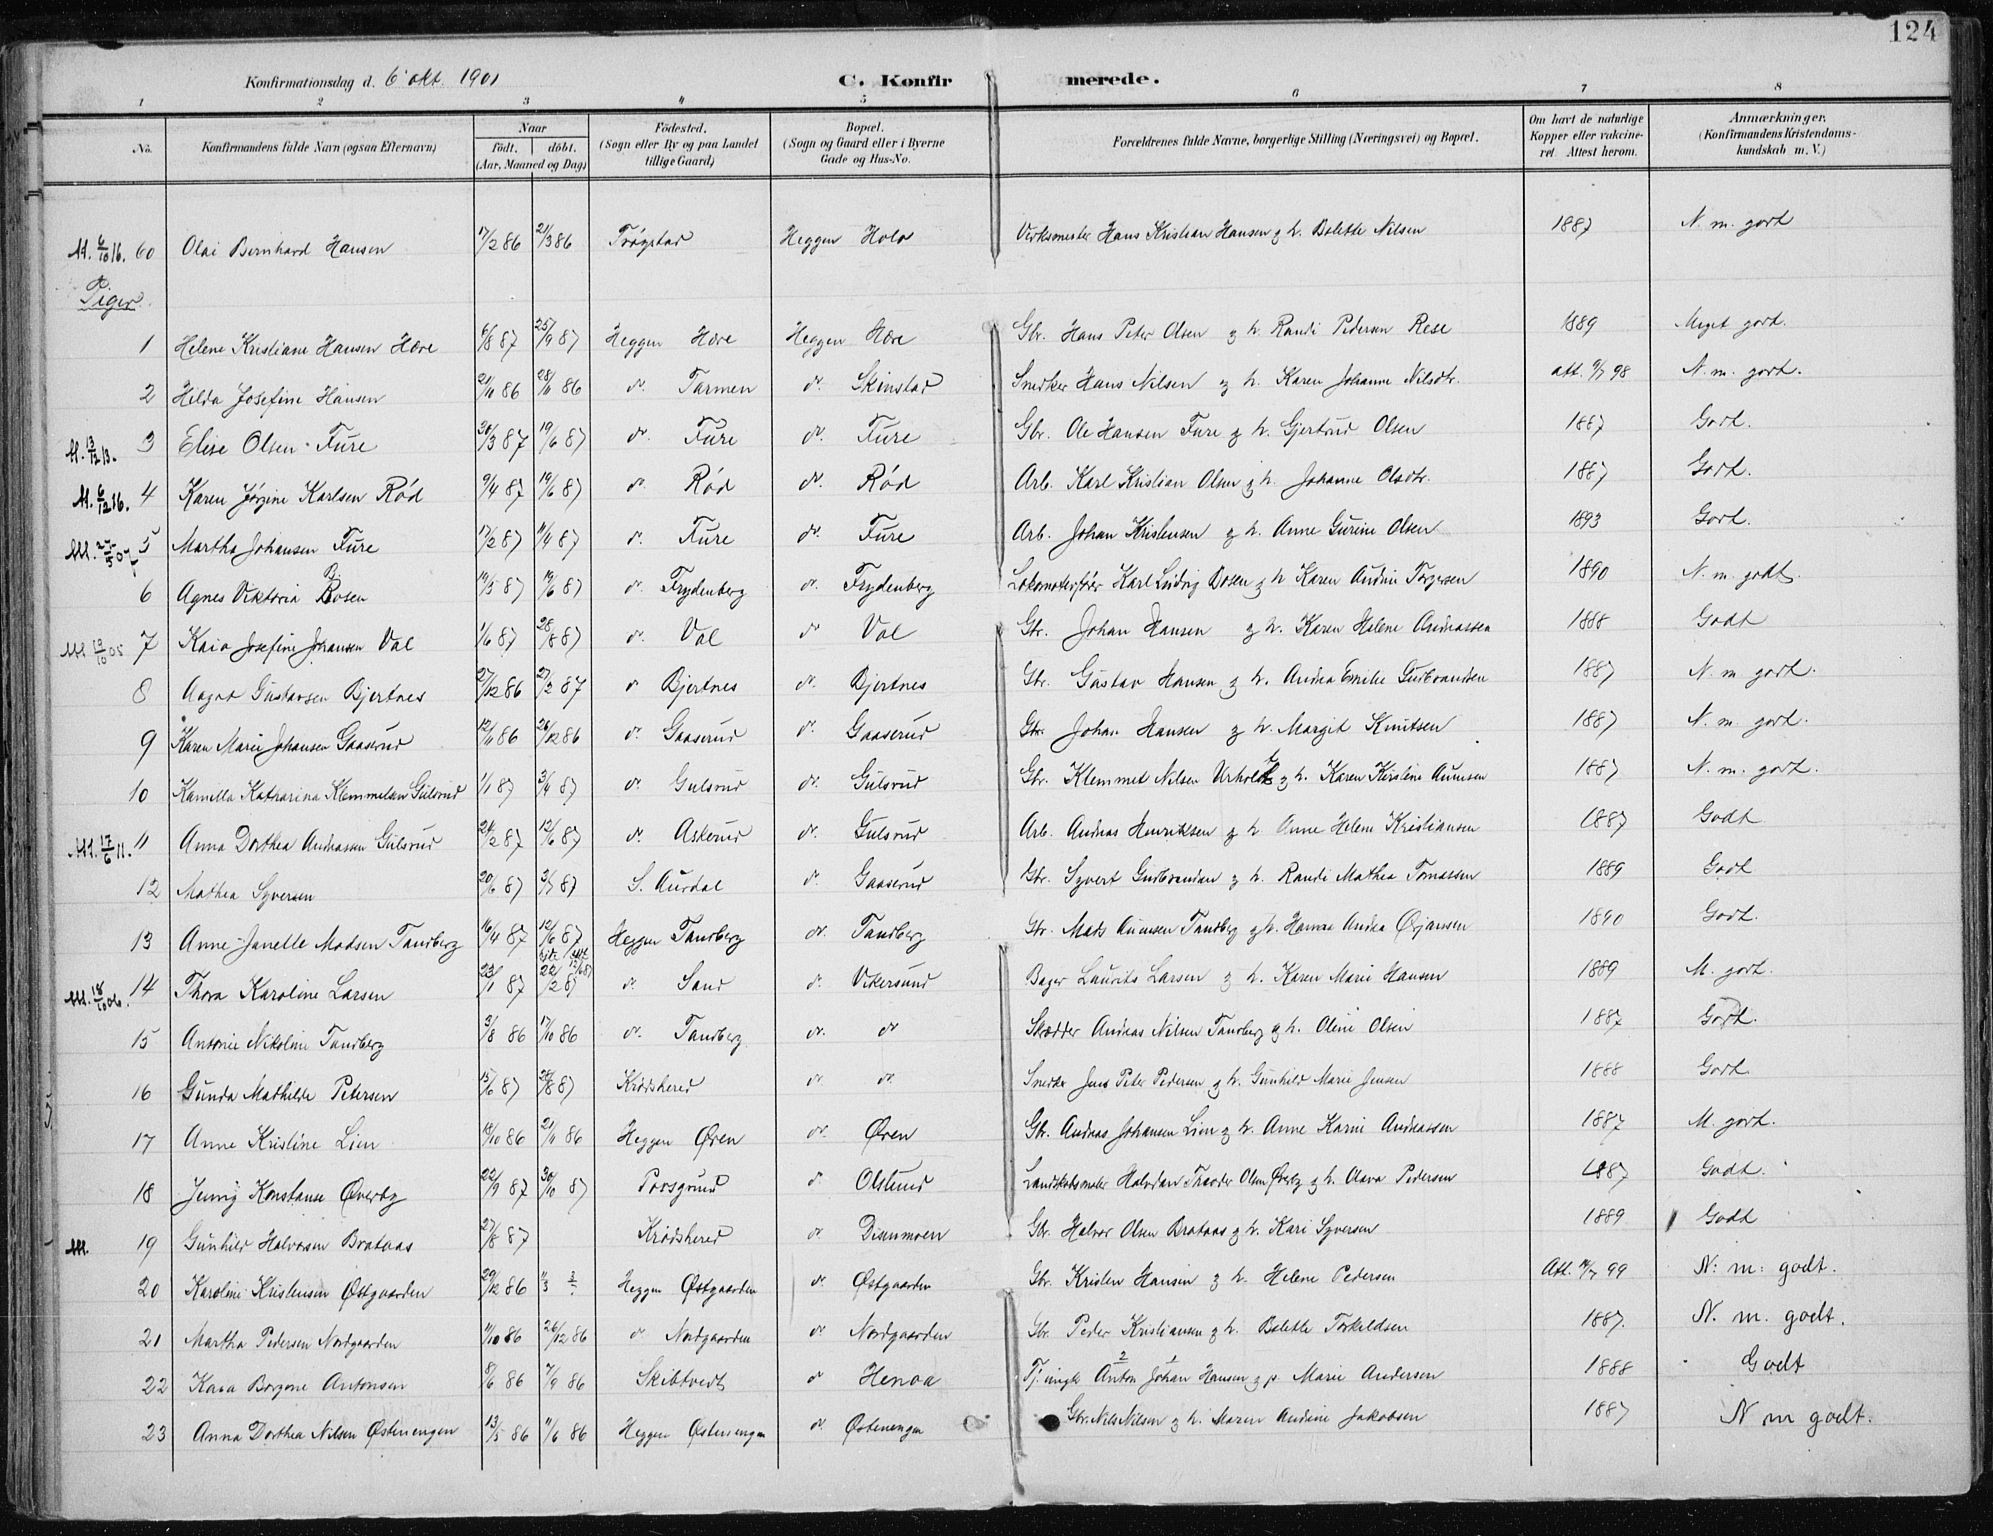 124
Konfirmationsdag d. 6 okt. 1901 C. Konfir merede.
1 2 3 4 5 6 7 8
No. Konfirmandens fulde Navn (ogsaa Efternavn) Naar født. døbt. (Aar, Maaned og Dag) Fødested. (Sogn eller By og paa Landet tillige Gaard) Bopæl. (Sogn og Gaard eller i Byerne Gade og Hus-No. Forældrenes fulde Navne, borgerlige Stilling (Næringsvei) og Bopæl. Om havt de naturlige Kopper eller vakcineret. Attest herom. Anmærkninger. (Konfirmandens Kristendomskundskab m. V.)
M. 6/10 16. 60 Olai Bernhard Hansen 17/2 86 21/3 86 Trøgstad Heggen Hola Verksmester Hans Kristian Hansen og h. Bolette Nilsen 1887 N. m. godt
Piger
1 Helene Kristiane Hansen Hære 6/8 87 25/9 87 Heggen Hære Heggen Hære Gbr. Hans Peter Olsen og h. Randi Pedersen Rese 1889 Meget godt.
2 Hilda Josefine Hansen 21/10 86 28/11 86 do. Tarmen do. Skinstad Snedker Hans Nilsen og h. Karen Johanne Nilsdtr. att. 98 N. m. godt.
M. 13/12 13. 3 Elise Olsen Fure 30/3 87 19/6 87 do. Fure do. Fure Gbr. Ole Hansen Fure og h. Gjertrud Olsen 1887 Godt.
M. 6/12 16. 4 Karen Jørgine Karlsen Rød 9/4 87 19/6 87 do. Rød do. Rød Arb. Karl Kristian Olsen og h. Johanne Olsdtr. 1887 Godt.
M. 25/5 07. 5 Martha Johansen Fure 17/2 87 11/4 87 do. Fure do. Fure Arb. Johan Kristensen og h. Anne Gurine Olsen 1893 Godt.
6 Agnes Viktoria Bosen 19/5 87 19/6 87 do. Frydenberg do. Frydenberg Lokomotivfører Karl Ludvig Bosen og h. Karen Andrine Torgersen 1890 N. m. godt.
M 19/10 05 7 Kaia Josefine Johansen Val 1/6 87 28/8 87 do. Val do Val Gbr. Johan Hansen og h. Karen Helene Andreassen 1888 Godt
8 Aagot Gustavsen Bjertnes 27/12 86 27/2 87 do Bjertnes do. Bjertnes Gbr. Gustav Hansen og h. Andrea Emilie Gudbrandsen 1887 N. m godt.
9 Karen Marie Johansen Gaaserud 12/11 86 26/12 86 do. Gaaserud do. Gaaserud Gbr. Johan Hansen og h. Margit Knutsen 1887 N. m. godt.
10 Kamilla Katharina Klemmetsen Gulsrud 1/1 87 3/4 87 do. Gulsrud do. Gulsrud Gbr. Klemmet Nilsen og h. Karen Kirstine Aunsen 1887 N. m. godt.
M. 17/6 11. 11 Anna Dorthea Andreassen Gulsrud 24/2 87 12/6 87 do. Askerud do. Gulsrud Arb. Andreas Henriksen og h. Anne Helene Kristiansen 1887 Godt
12 Mathea Syversen 20/6 87 3/7 87 S. Aurdal do. Gaaserud Gbr. Syvert Gudbrandsen og h. Randi Mathea Tomassen 1889 Godt
13 Anne Janette Madsen Tandberg 16/4 87 12/6 87 Heggen Tandberg do. Tandberg Gbr. Mads Aunsen Tandberg og h. Hanna Andrea Ørjansen 1890 Godt.
M. 18/10 06. 14 Thora Karoline Larsen 23/1 87 22/2 87 do. Sand do. Vikersund Bager Laurits Larsen og h. Karen Marie Hansen 1889 M. godt.
15 Antonie Nikoline Tandberg 3/8 86 17/10 86 do. Tandberg do. do Skrædder Andreas Nilsen Tandberg og h. Oline Olsen 1887 Godt.
16 Gunda Mathilde Petersen 15/6 87 28/8 87 Krødshered do. do. Snedker Jens Peter Pedersen og h. Gunhild Marie Jensen 1888 Godt.
17 Anne Kristine Lien 19/10 86 21/11 86 Heggen Øren do. Øren Gbr. Andreas Johansen Lien og h. Anne Karine Andreassen 1887 M. godt.
18 Jenny Konstanse Øverby 22/9 87 30/10 87 Porsgrund do Olslund Landskabsmaler Halvdan Thaoder Olsen Øverby og h. Olava Pedersen 1887 Godt.
M. 19 Gunhild Halvorsen Brataas 27/8 87 Krødshered do Disenmoen Gbr. Halvor Olsen Brataas og h. Kari Syversen 1889 Godt
20 Karoline Kristensen Østgaarden 29/12 86 Heggen Østgaarden do. Østgaarden Gbr. Kristen Hansen og h. Helene Pedersen Att. 99 N: m: godt.
21 Martha Pedersen Nordgaarden 11/10 86 26/12 86 do Nordgaarden do Nordgaarden Gbr. Peder Kristiansen og h. Bolette Torkildsen 1887. N. m. godt.
22 Kaia Borgine Antonsen 8/6 86 7/9 86 Skibtvedt do Henoa Tj. ungk. Anton Johan Hansen og p. Marie Andersen 1888 Godt
23 Anna Dorthea Nilsen Østenengen 13/5 86 11/6 86 Heggen Østenengen do Østenengen Gbr. Nils Nilsen og h. Maren Andrine Jakobsen 1887 N m godt.